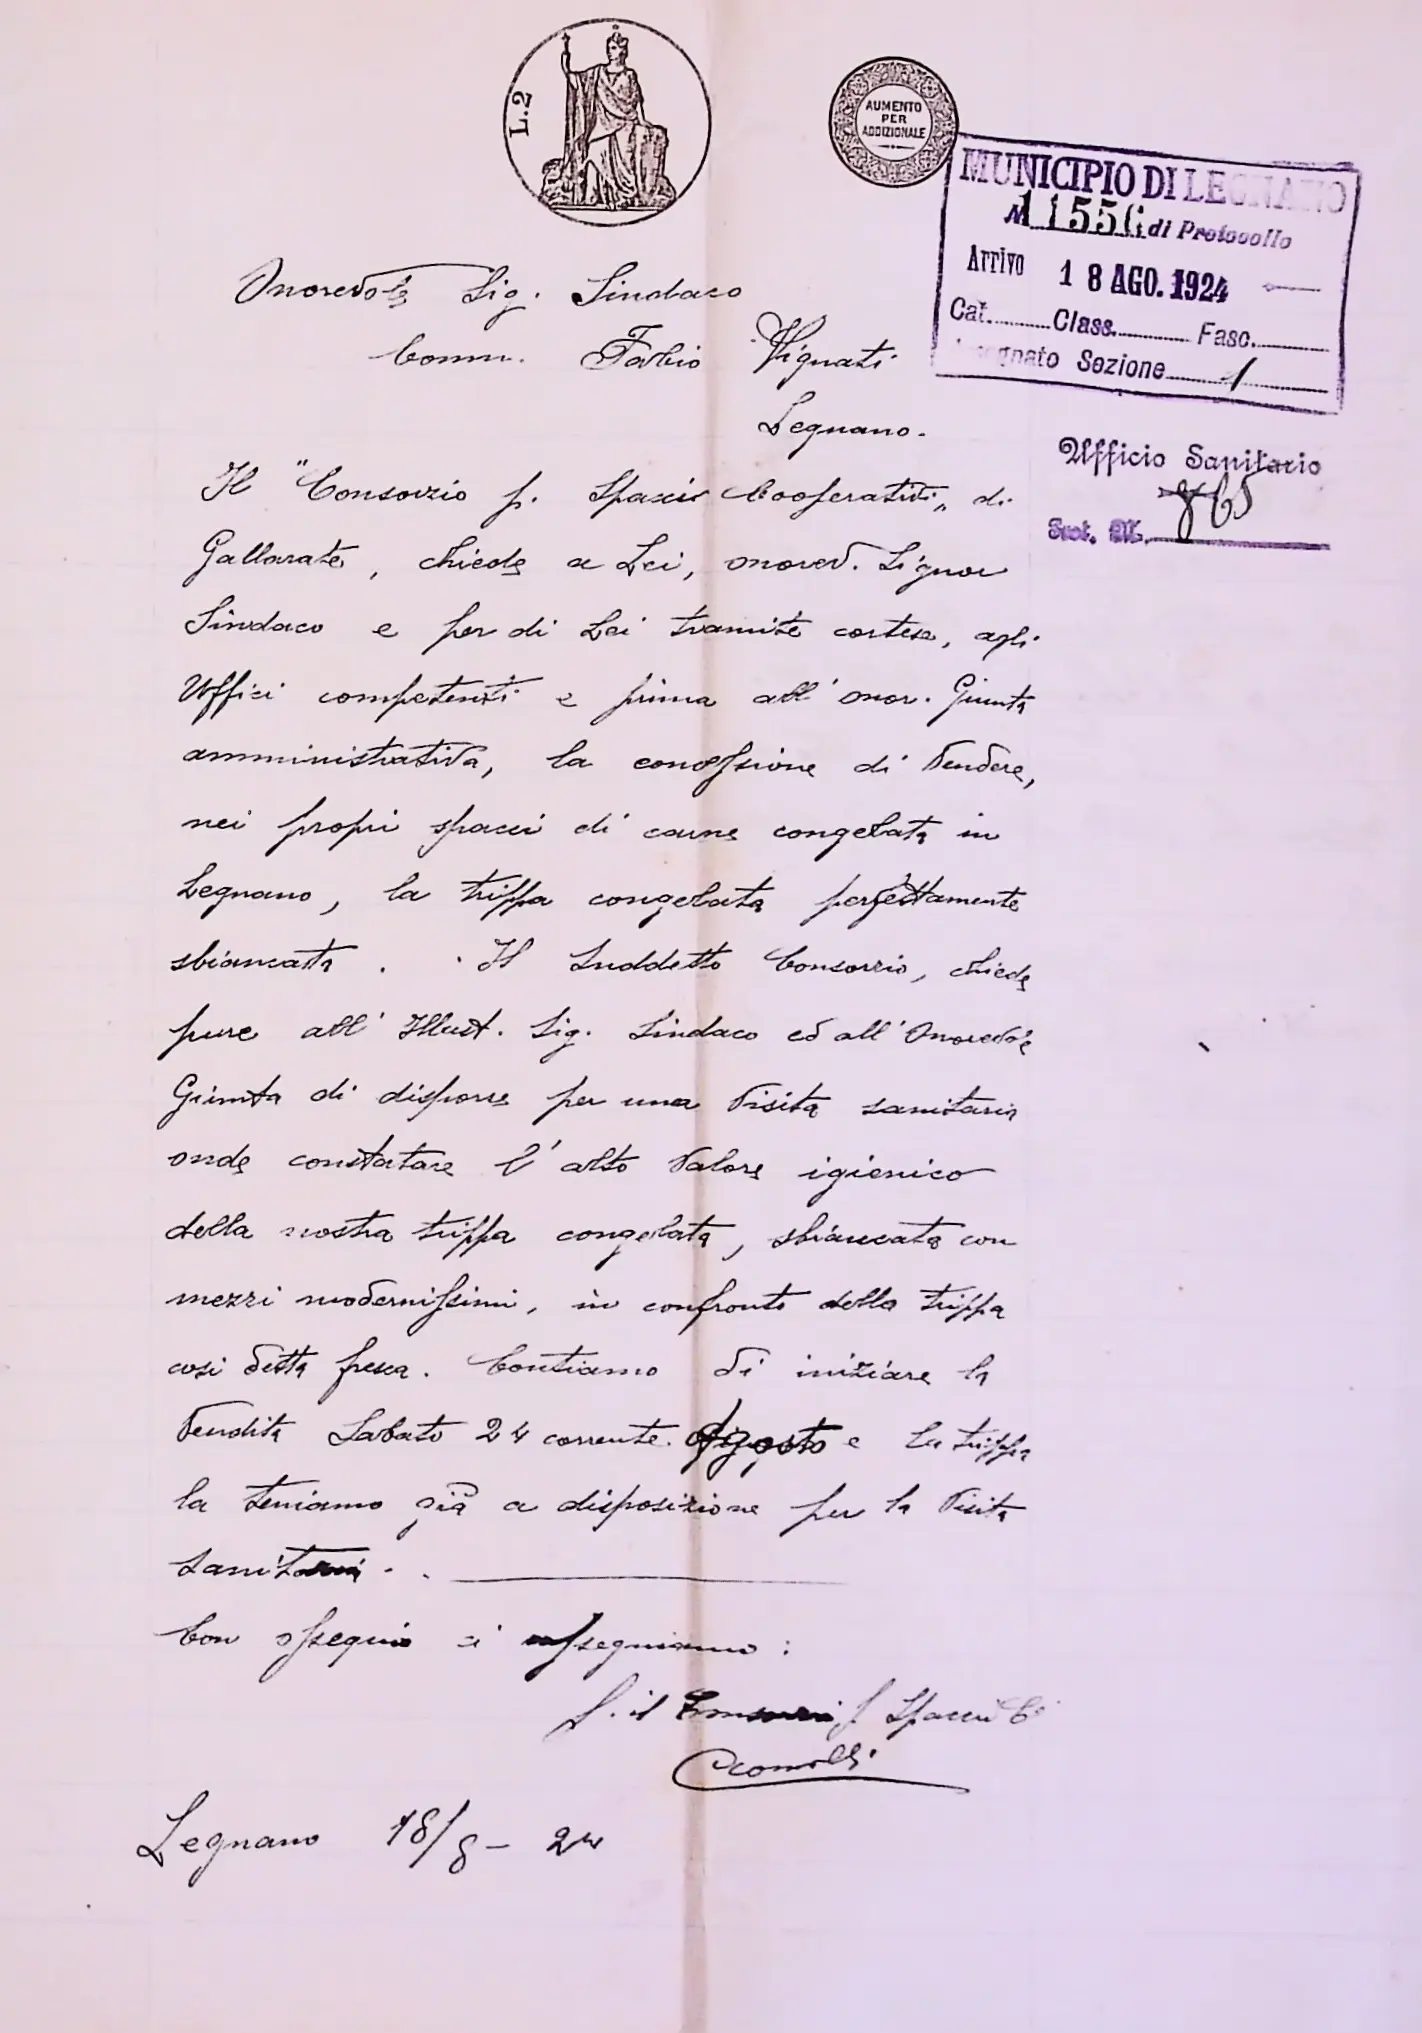 L.2
AUMENTO
PER
ADDIZIONALE
MUNICIPIO DI LEGNANO
N. 11556 di Protocollo
Arrivo 18 AGO. 1924
Cat. Class. Fasc.
Assegnato Sezione 1
Ufficio Sanitario
Prot. N. 865
Onorevole Sig. Sindaco
Comm. Fabio Vignati
Legnano.
Il "Consorzio p. Spacci Cooperativi„ di
Gallarate, chiede a Lei, onorev. Signor
Sindaco e per di Lei tramite cortese, agli
Uffici competenti e prima all'onor. Giunta
amministrativa, la concessione di vendere,
nei propri spacci di carne congelata in
Legnano, la trippa congelata perfettamente
sbiancata. Il suddetto Consorzio, chiede
pure all'Illust. Sig. Sindaco ed all'Onorevole
Giunta di disporre per una visita sanitaria
onde constatare l'alto valore igienico
della nostra trippa congelata, sbiancata con
mezzi modernissimi, in confronto della trippa
così detta fresca. Contiamo di iniziare la
vendita Sabato 24 corrente Agosto e la trippa
la teniamo già a disposizione per la visita
sanitaria.
Con ossequio ci rassegniamo:
p. il Consorzio p. Spacci C.
Legnano 18/8-24